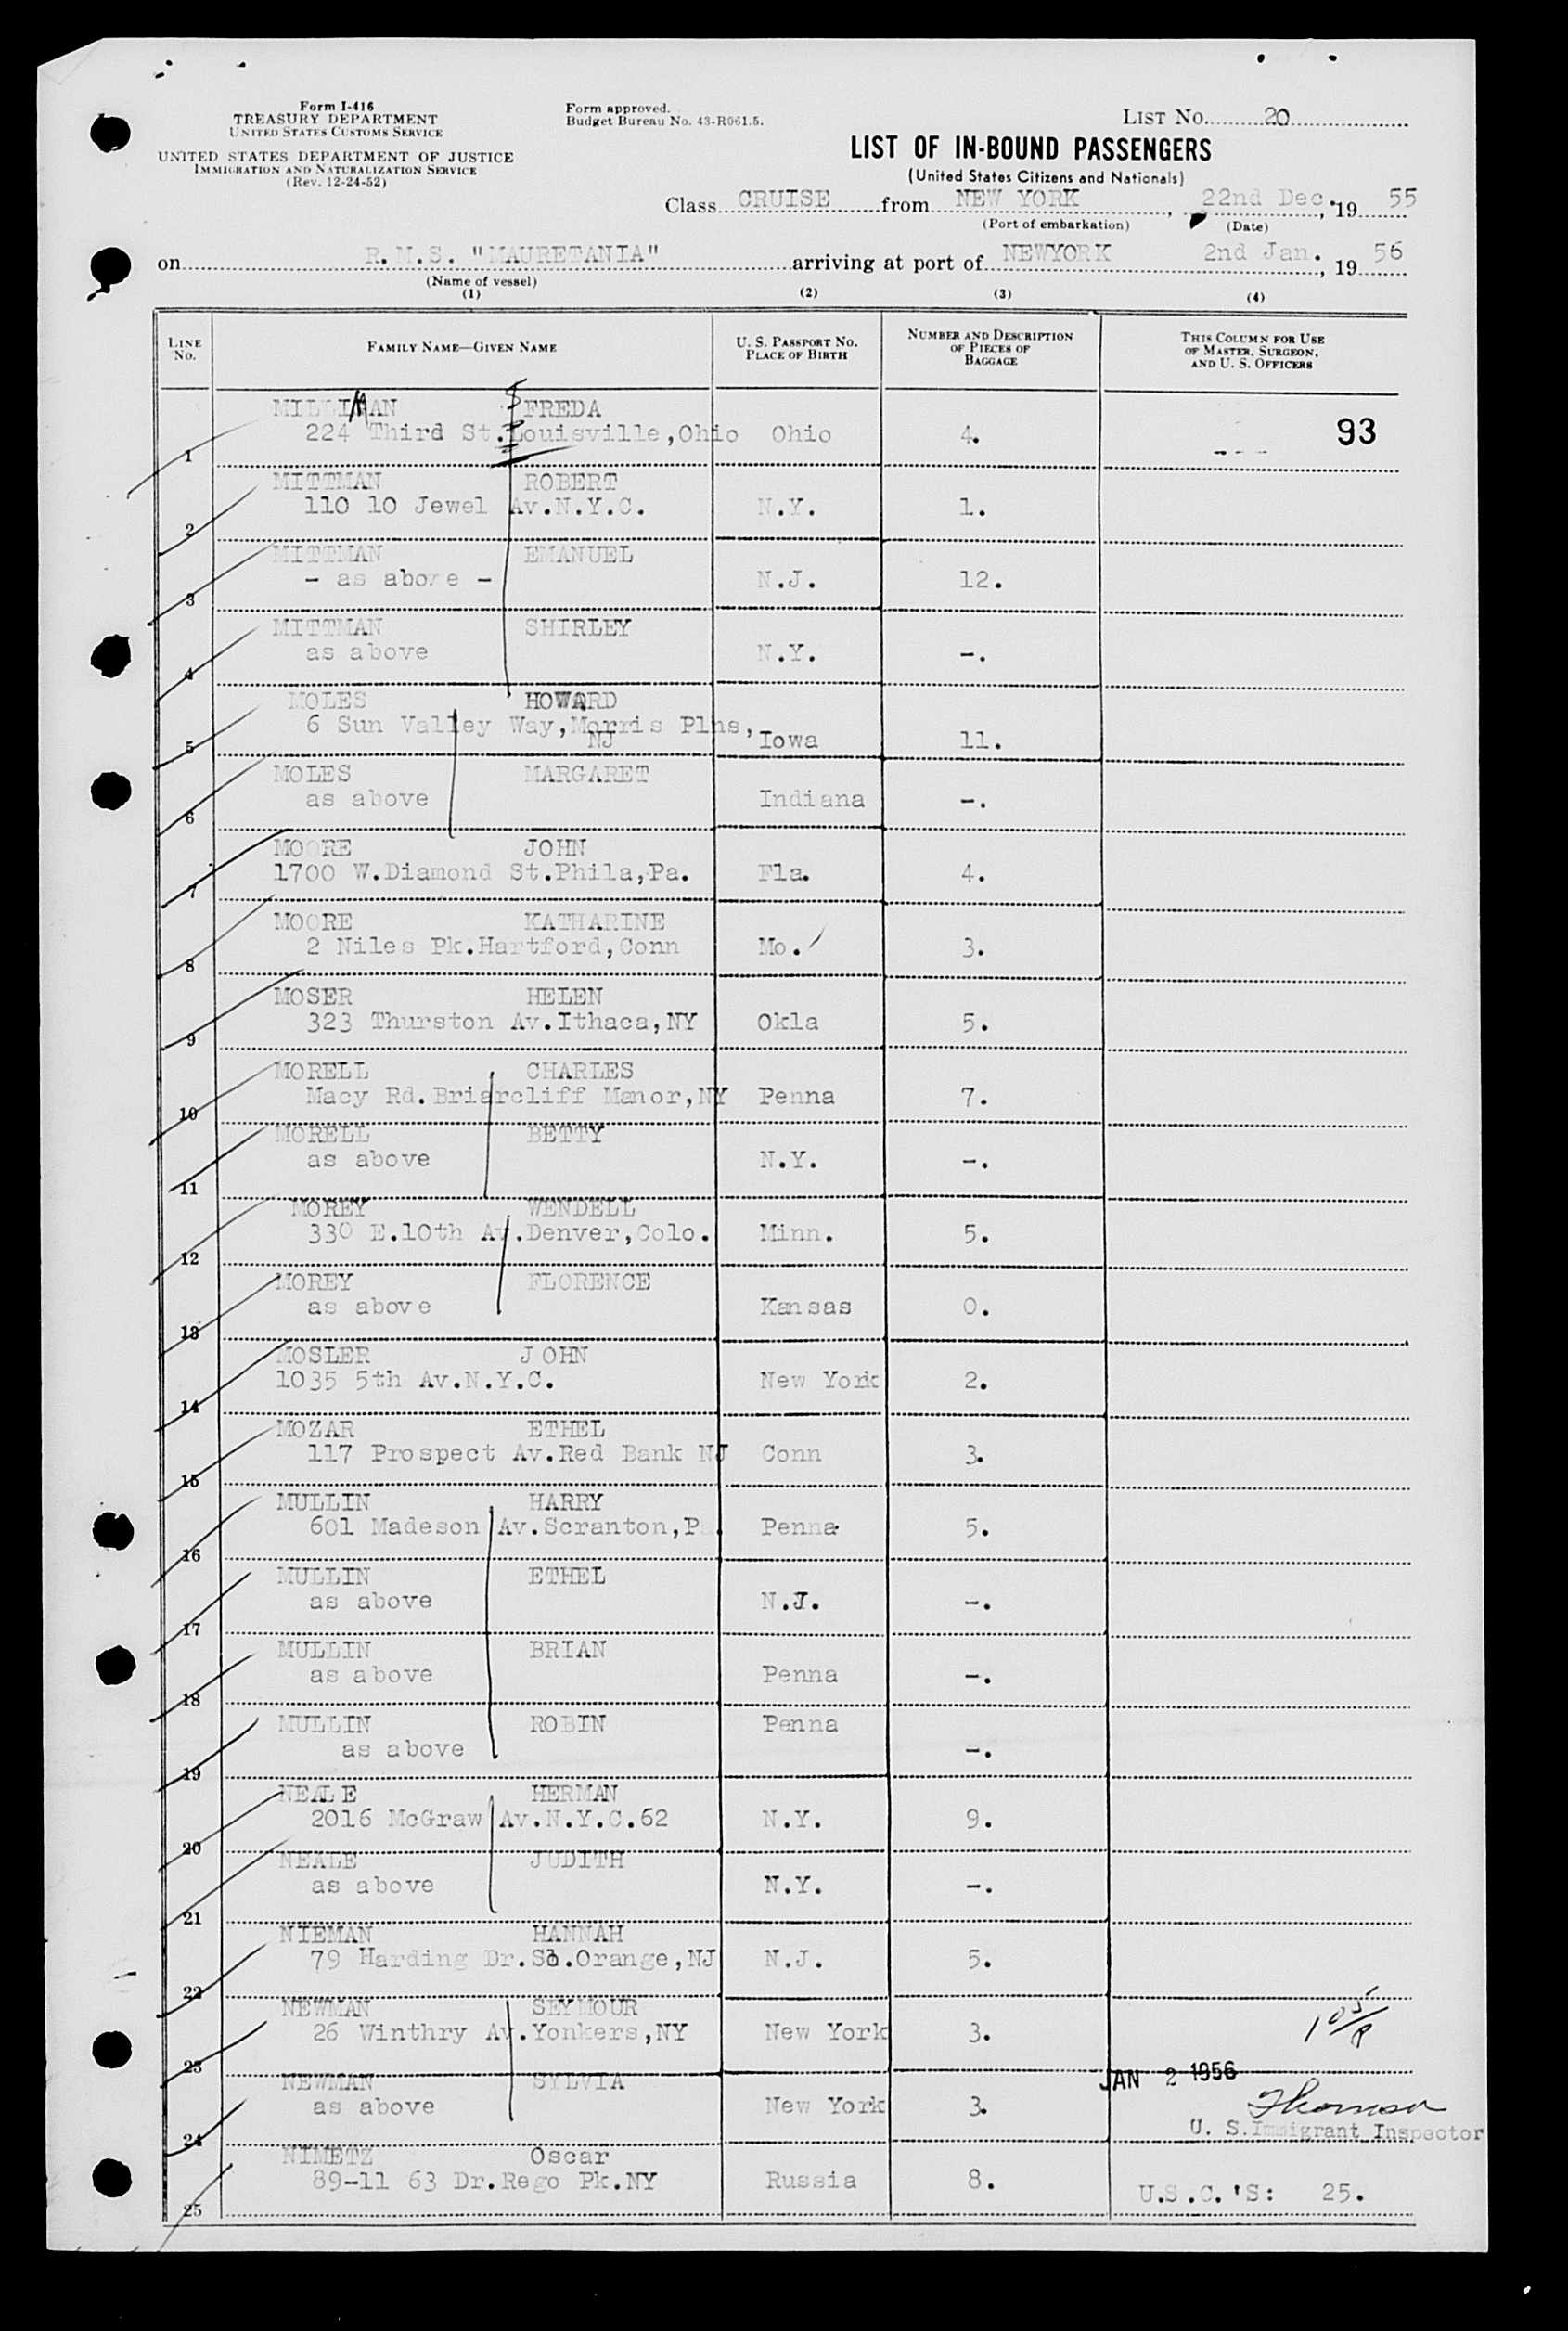 Form I-416
TREASURY DEPARTMENT
UNITED STATES CUSTOMS SERVICE
UNITED STATES DEPARTMENT OF JUSTICE
IMMIGRATION AND NATURALIZATION SERVICE
(Rev. 12-24-52)
Form approved.
Budget Bureau No. 43-R061.5.
LIST NO. 20
LIST OF IN-BOUND PASSENGERS
(United States Citizens and Nationals)
Class CRUISE from NEW YORK, 22nd Dec., 19 55
(Port of embarkation) (Date)
on R.M.S. "MAURETANIA" arriving at port of NEWYORK 2nd Jan., 19 56
(Name of vessel)
(1) (2) (3) (4)
LINE NO.
FAMILY NAME—GIVEN NAME
U. S. PASSPORT NO.
PLACE OF BIRTH
NUMBER AND DESCRIPTION
OF PIECES OF
BAGGAGE
THIS COLUMN FOR USE
OF MASTER, SURGEON,
AND U. S. OFFICERS
MILLIMAN FREDA
224 Third St. Louisville,Ohio Ohio 4. --- 93
1
MITTMAN ROBERT
110 10 Jewel Av.N.Y.C. N.Y. 1.
2
MITTMAN EMANUEL
- as above - N.J. 12.
3
MITTMAN SHIRLEY
as above N.Y. -.
4
MOLES HOWARD
6 Sun Valley Way,Morris Plns,
NJ Iowa 11.
5
MOLES MARGARET
as above Indiana -.
6
MOORE JOHN
1700 W.Diamond St.Phila,Pa. Fla. 4.
7
MOORE KATHARINE
2 Niles Pk.Hartford,Conn Mo. 3.
8
MOSER HELEN
323 Thurston Av.Ithaca,NY Okla 5.
9
MORELL CHARLES
Macy Rd.Briarcliff Manor,NY Penna 7.
10
MORELL BETTY
as above N.Y. -.
11
MOREY WENDELL
330 E.10th Av.Denver,Colo. Minn. 5.
12
MOREY FLORENCE
as above Kansas 0.
13
MOSLER JOHN
1035 5th Av.N.Y.C. New York 2.
14
MOZAR ETHEL
117 Prospect Av.Red Bank NJ Conn 3.
15
MULLIN HARRY
601 Madeson Av.Scranton,Pa. Penna 5.
16
MULLIN ETHEL
as above N.J. -.
17
MULLIN BRIAN
as above Penna -.
18
MULLIN ROBIN Penna
as above -.
19
NEALE HERMAN
2016 McGraw Av.N.Y.C.62 N.Y. 9.
20
NEALE JUDITH
as above N.Y. -.
21
NIEMAN HANNAH
79 Harding Dr.So.Orange,NJ N.J. 5.
22
NEWMAN SEYMOUR
26 Winthry Av.Yonkers,NY New York 3.
23
JAN 2 1956
NEWMAN SYLVIA
as above New York 3.
Thomson
U. S.Immigrant Inspector
24
NIMETZ Oscar
89-11 63 Dr.Rego Pk.NY Russia 8.
U.S.C.'S: 25.
25